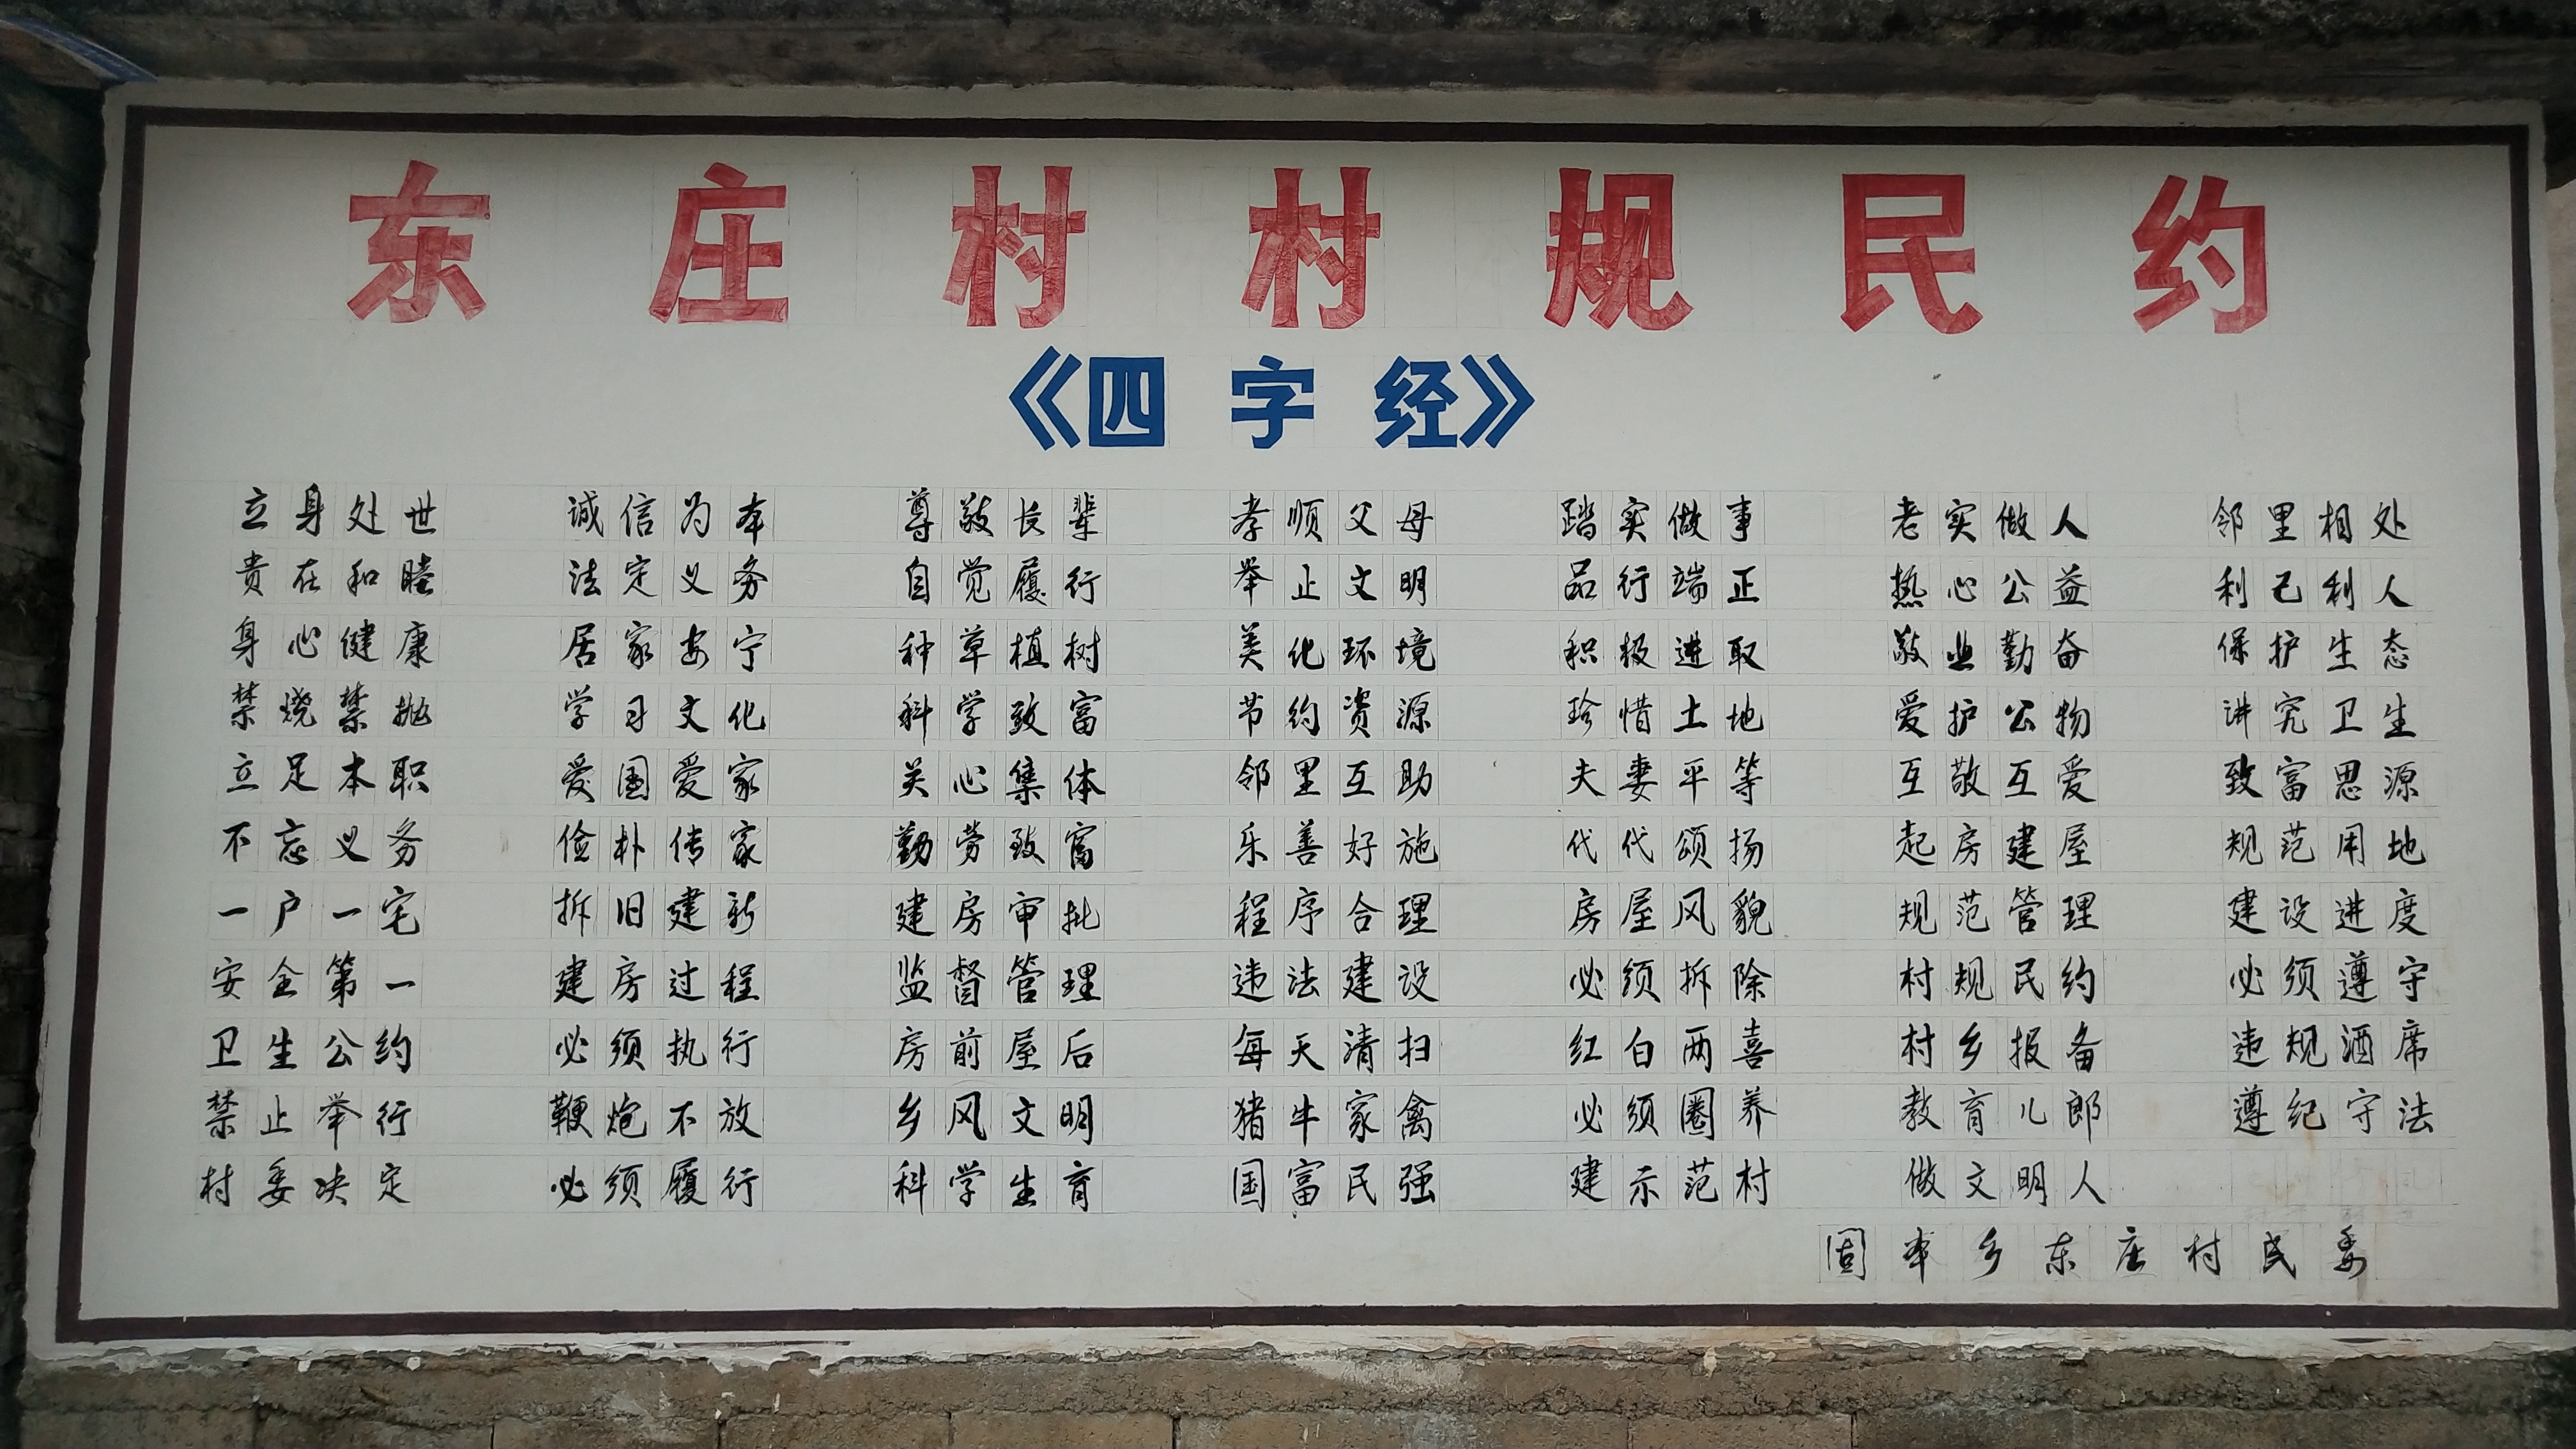 东庄村村规民约
《四字经》
立身处世 诚信为本 尊敬长辈 孝顺父母 踏实做事 老实做人 邻里相处
贵在和睦 法定义务 自觉履行 举止文明 品行端正 热心公益 利己利人
身心健康 居家安宁 种草植树 美化环境 积极进取 敬业勤奋 保护生态
禁烧禁抛 学习文化 科学致富 节约资源 珍惜土地 爱护公物 讲究卫生
立足本职 爱国爱家 关心集体 邻里互助 夫妻平等 互敬互爱 致富思源
不忘义务 俭朴传家 勤劳致富 乐善好施 代代颂扬 起房建屋 规范用地
一户一宅 拆旧建新 建房审批 程序合理 房屋风貌 规范管理 建设进度
安全第一 建房过程 监督管理 违法建设 必须拆除 村规民约 必须遵守
卫生公约 必须执行 房前屋后 每天清扫 红白两喜 村乡报备 违规酒席
禁止举行 鞭炮不放 乡风文明 猪牛家禽 必须圈养 教育儿郎 遵纪守法
村委决定 必须履行 科学生育 国富民强 建示范村 做文明人
固本乡东庄村民委